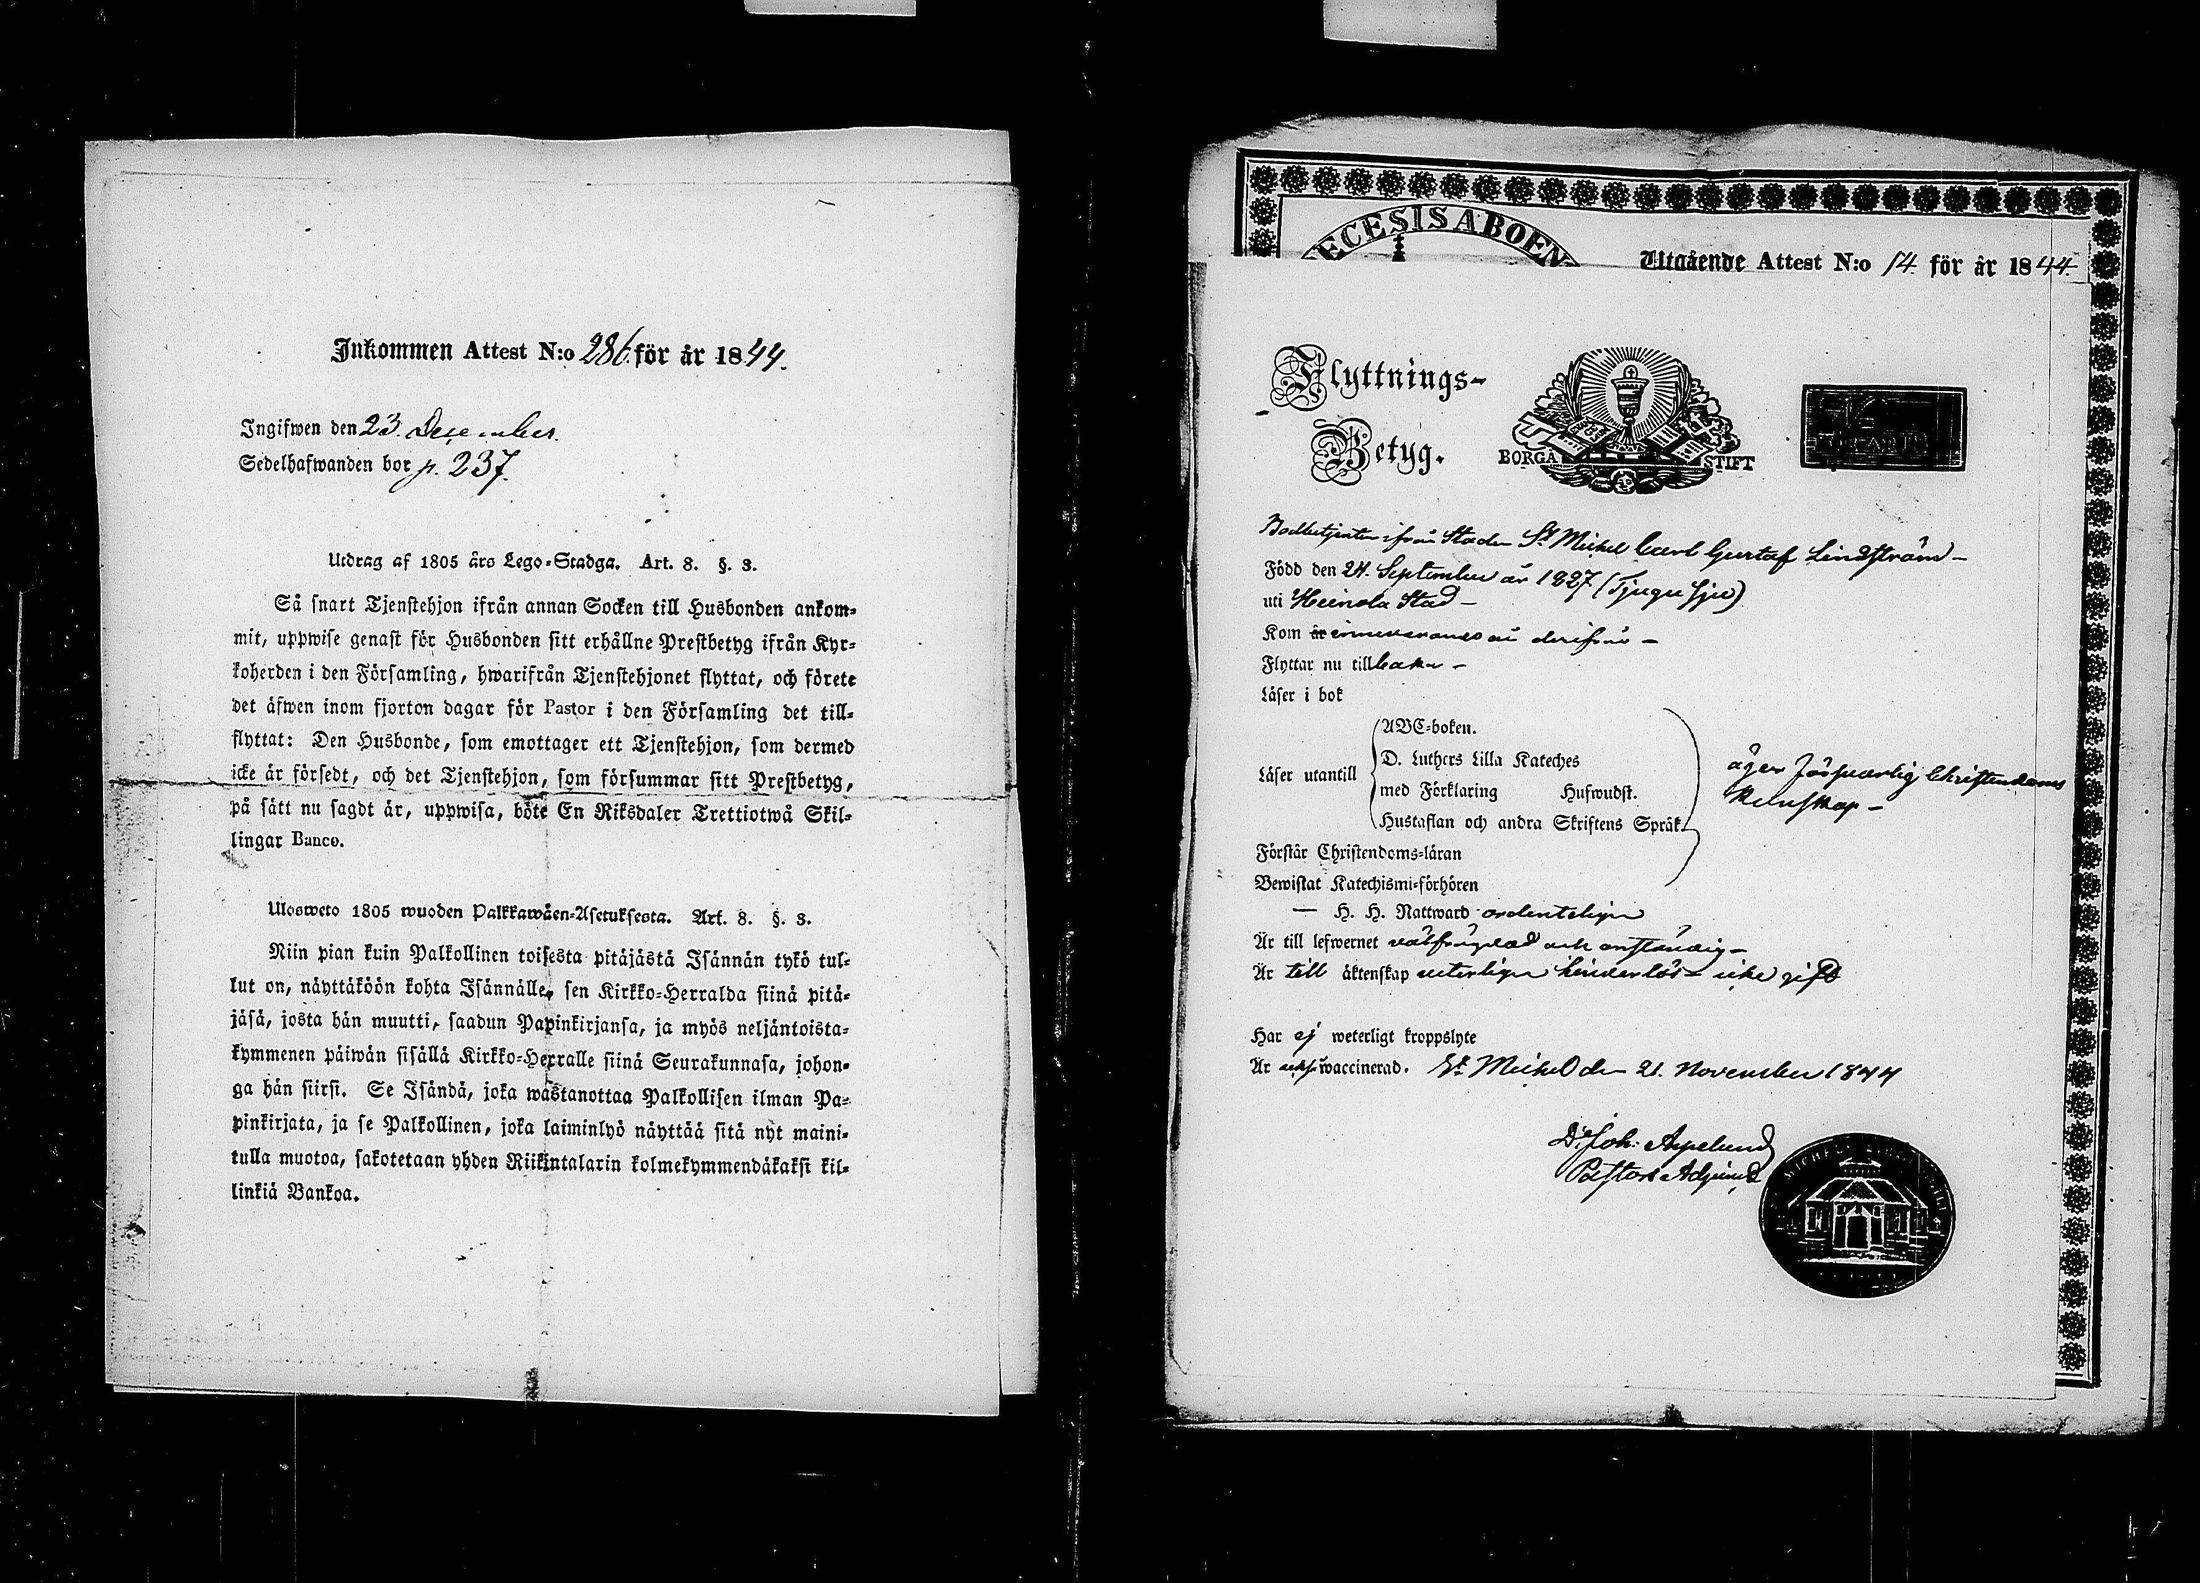 Inkommen Attest N:o 286. för år 1844.
Ingifwen den 23. December.
Sedelhafwanden bor p. 237.
Utdrag af 1805 års Lego-Stadga. Art. 8. §. 3.
Så snart Tjenstehjon ifrån annan Socken till Husbonden ankom-
mit, uppwise genast för Husbonden sitt erhållne Prestbetyg ifrån Kyr-
koherden i den Församling, hwarifrån Tjenstehjonet flyttat, och förete
det äfwen inom fjorton dagar för Pastor i den Församling det till-
flyttat: Den Husbonde, som emottager ett Tjenstehjon, som dermed
icke är försedt, och det Tjenstehjon, som försummar sitt Prestbetyg,
på sätt nu sagdt är, uppwisa, böte En Riksdaler Trettiotwå Skil-
lingar Banco.
Ulosweto 1805 wuoden Palkkawäen-Asetuksesta. Art. 8. §. 3.
Niin pian kuin Palkollinen toisesta pitäjästä Isännän tykö tul-
lut on, näyttäköön kohta Isännälle, sen Kirkko-Herralda siinä pitä-
jäsä, josta hän muutti, saadun Papinkirjansa, ja myös neljäntoista-
kymmenen päiwän sisällä Kirkko-Herralle siinä Seurakunnasa, johon-
ga hän siirsi. Se Isändä, joka wastanottaa Palkollisen ilman Pa-
pinkirjata, ja se Palkollinen, joka laiminlyö näyttää sitä nyt maini-
tulla muotoa, sakotetaan yhden Riikintalarin kolmekymmendäkaksi kil-
linkiä Bankoa.
ECESIS ABOEN
Utgående Attest N:o 14. för år 1844.
Flyttnings-
Betyg.
BORGÅ STIFT
Bodbetjenten ifrån Staden St Michel Carl Gustaf Lindström
Född den 24. September år 1827 (Tjugu sju)
uti Heinola Stad
Kom år innevarande år derifrån
Flyttar nu tillbaka
Läser i bok
ABC-boken.
D. Luthers Lilla Kateches
Läser utantill
med Förklaring Hufwudst.
Hustaflan och andra Skriftens Språk.
äger försvarlig Christendoms
kunskap
Förstår Christendoms-läran
Bewistat Katechismi-förhören
— H. H. Nattward ordentligen
Är till lefwernet välfrejdad och anständig
Är till äktenskap veterligen hinderlös icke gift
Har ej weterligt kroppslyte
Är waccinerad. St Michel den 21. November 1844
Joh: Aspelund
Pastors Adjunct